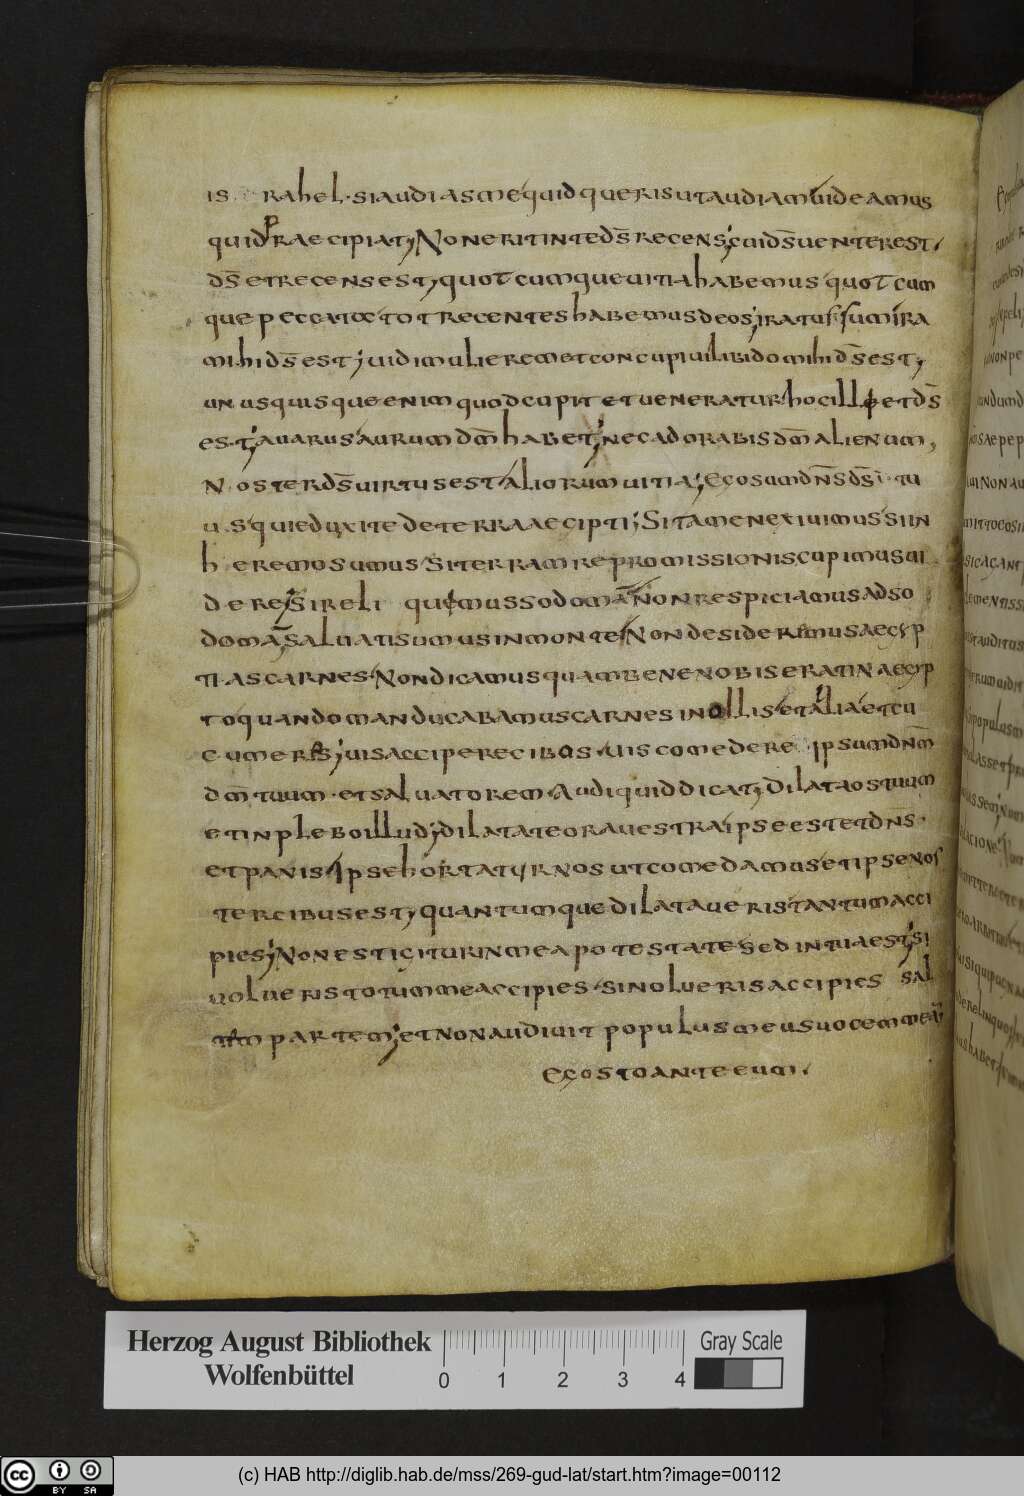 israhel · si audias me quid queris ut audiam uideamus
quid praecipiat; Non erit in te ds̄ recens; cui ds̄ uenter est,
ds̄ et recens est; quotcumque uitia habemus quotcum
que peccata tot recentes habemus deos; iratus sum ira
mihi ds̄ est; uidi mulierem et concupiui libido mihi ds̄ est;
unusquisque enim quod cupit et ueneratur hoc illi et ds̄
est; auarus aurum dm̄ habet; nec adorabis dm̄ alienum,
Noster ds̄ uirtus est aliorum uitia; Ego sum dn̄s ds̄
qui eduxi te de terra aecipti; Si tamen exiuimus si in
heremo sumus Si terram repromissionis cupimus ui
dere; Si reli quimus sodomā Non respiciamus ad so
domā; Saluati sumus in monte Non desideremus aegyp
tias carnes Non dicamus quam bene nobis erat in aegyp
to quando manducabamus carnes in ollis et alia et cu
cumeres; uis accipere cibos uis comedere ipsum dn̄m
dm̄ tuum · et saluatorem Audi quid dicat; Dilata os tuum
et in ple bo illud; dilatate ora uestra ipse est et dn̄s ·
et panis Ipse hortatur nos ut comedamus et ipse nos
ter cibus est; quantumque dilataueris tantum acci
pies; Non est igitur in mea potestate sed in tua est; si
uolueris totum me accipies · si nolueris accipies
partem; et non audiuit populus meus uocem meā
Ego sto ante eum ·
Herzog August Bibliothek
Wolfenbüttel
0 1 2 3 4
Gray Scale
cc BY SA
(c) HAB http://diglib.hab.de/mss/269-gud-lat/start.htm?image=00112